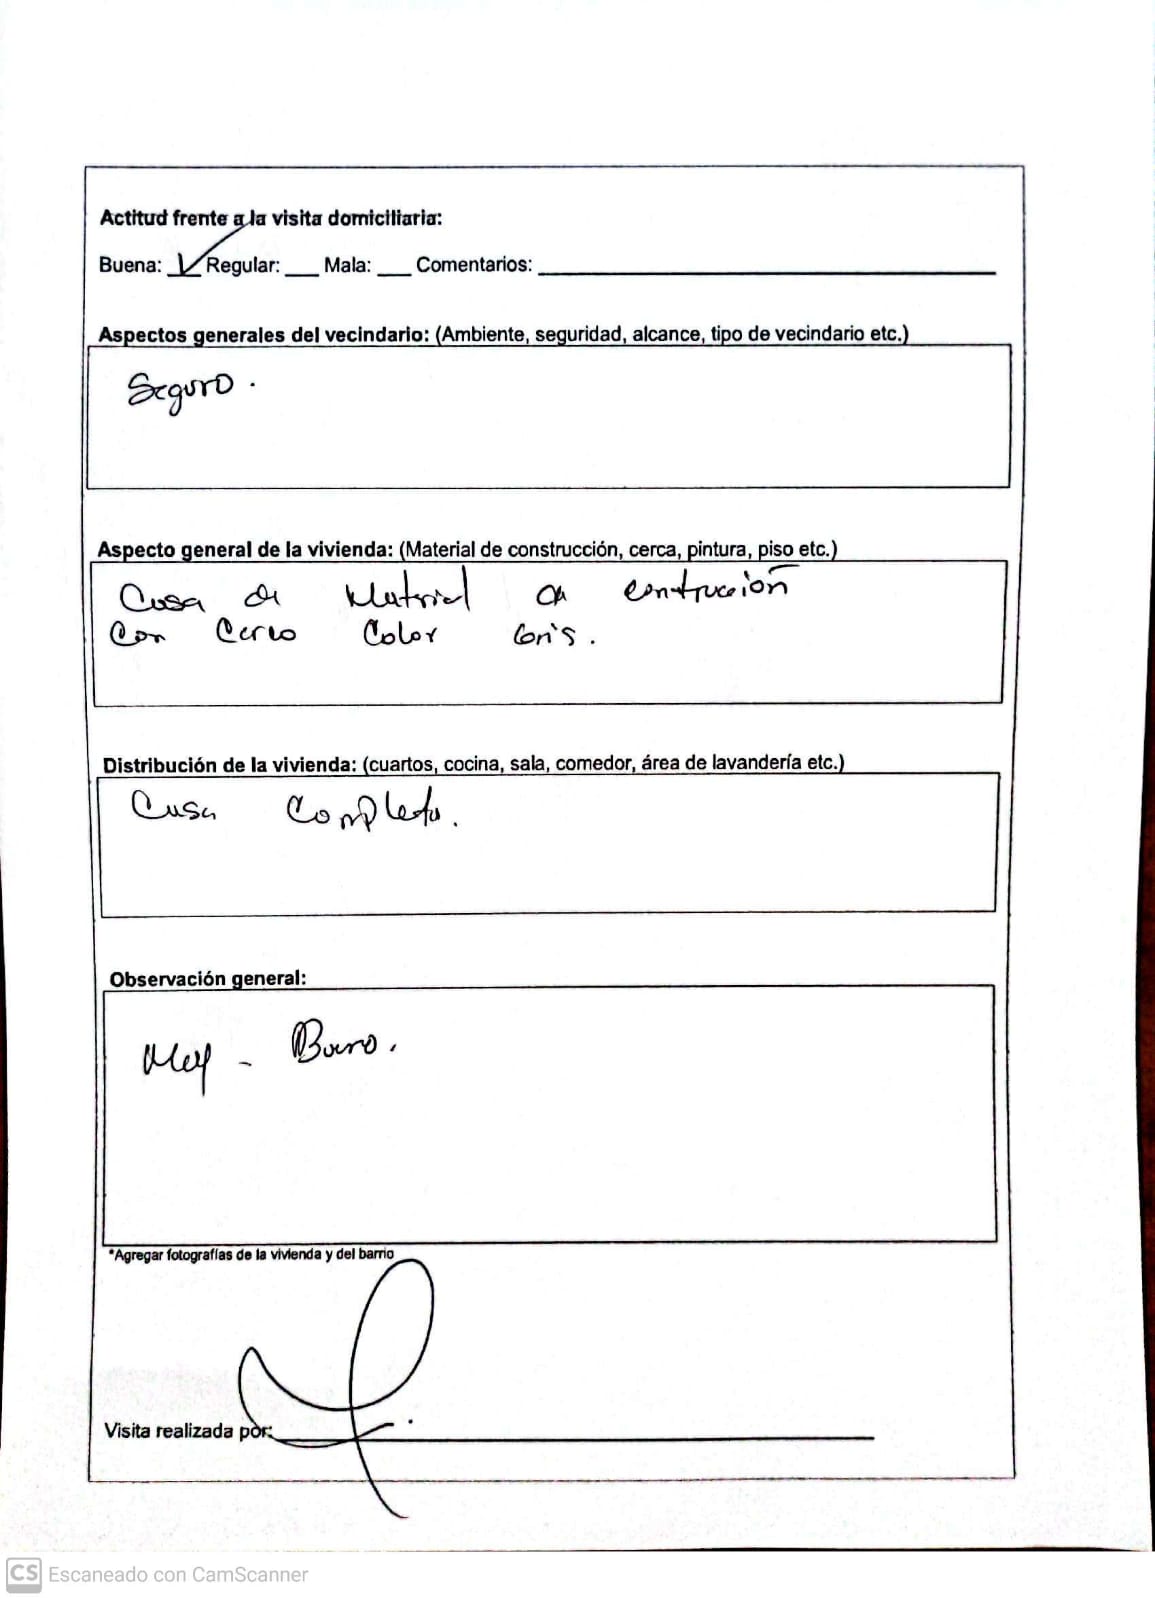 Actitud frente a la visita domiciliaria:
Buena: ✓ Regular: ___ Mala: ___ Comentarios: ___
Aspectos generales del vecindario: (Ambiente, seguridad, alcance, tipo de vecindario etc.)
Seguro.
Aspecto general de la vivienda: (Material de construcción, cerca, pintura, piso etc.)
Casa de Material de contrucción
Con Cerco Color Gris.
Distribución de la vivienda: (cuartos, cocina, sala, comedor, área de lavandería etc.)
Casa Completa.
Observación general:
Muy - Bueno.
*Agregar fotografías de la vivienda y del barrio
Visita realizada por:
CS Escaneado con CamScanner